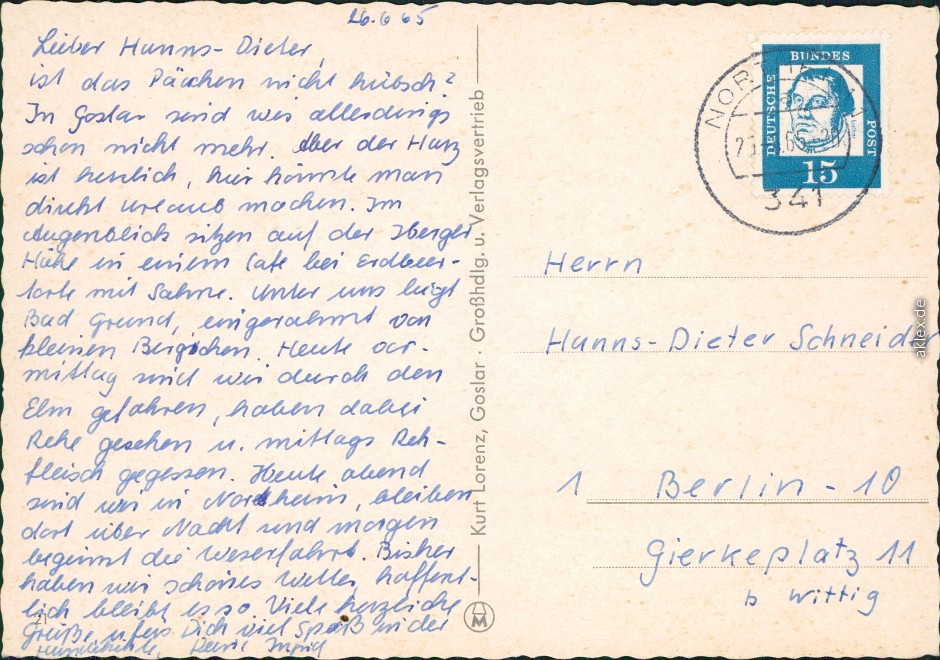 26.6.65
Lieber Hanns-Dieter,
ist das Päckchen nicht hübsch?
In Goslar sind wir allerdings
schon nicht mehr. Aber der Harz
ist herrlich, hier könnte man
direkt Urlaub machen. Im
Augenblick sitzen auf der Iberger
Höhe in einem Cafe bei Erdbeer-
torte mit Sahne. Unter uns liegt
Bad Grund, eingerahmt von
kleinen Bergchen. Heute vor-
mittag sind wir durch den
Elm gefahren, haben dabei
Rehe gesehen u. mittags Reh-
fleisch gegessen. Heute abend
sind wir in Nordheim, bleiben
dort über Nacht und morgen
beginnt die Weserfahrt. Bisher
haben wir schönes Wetter, hoffent-
lich bleibt es so. Viele herzliche
Grüße u. für Dich viel Spaß in der
Deine Ingrid
Kurt Lorenz, Goslar · Großhdlg. u. Verlagsvertrieb
M
DEUTSCHE
BUNDES
POST
15
341
Herrn
Hanns-Dieter Schneider
1 Berlin-10
Gierkeplatz 11
b Wittig
aklex.de